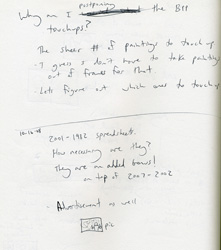 postponing
Why am I the BP
touchups?
- The sheer # of paintings to touch up
- I guess I don't have to take paintings
out of frames for that.
- Lets figure out which ones to touch up
2001-1982 spreadsheet.
How necessary are they?
They are an added bonus!
on top of 2007-2002
- Advertisement as well
pic